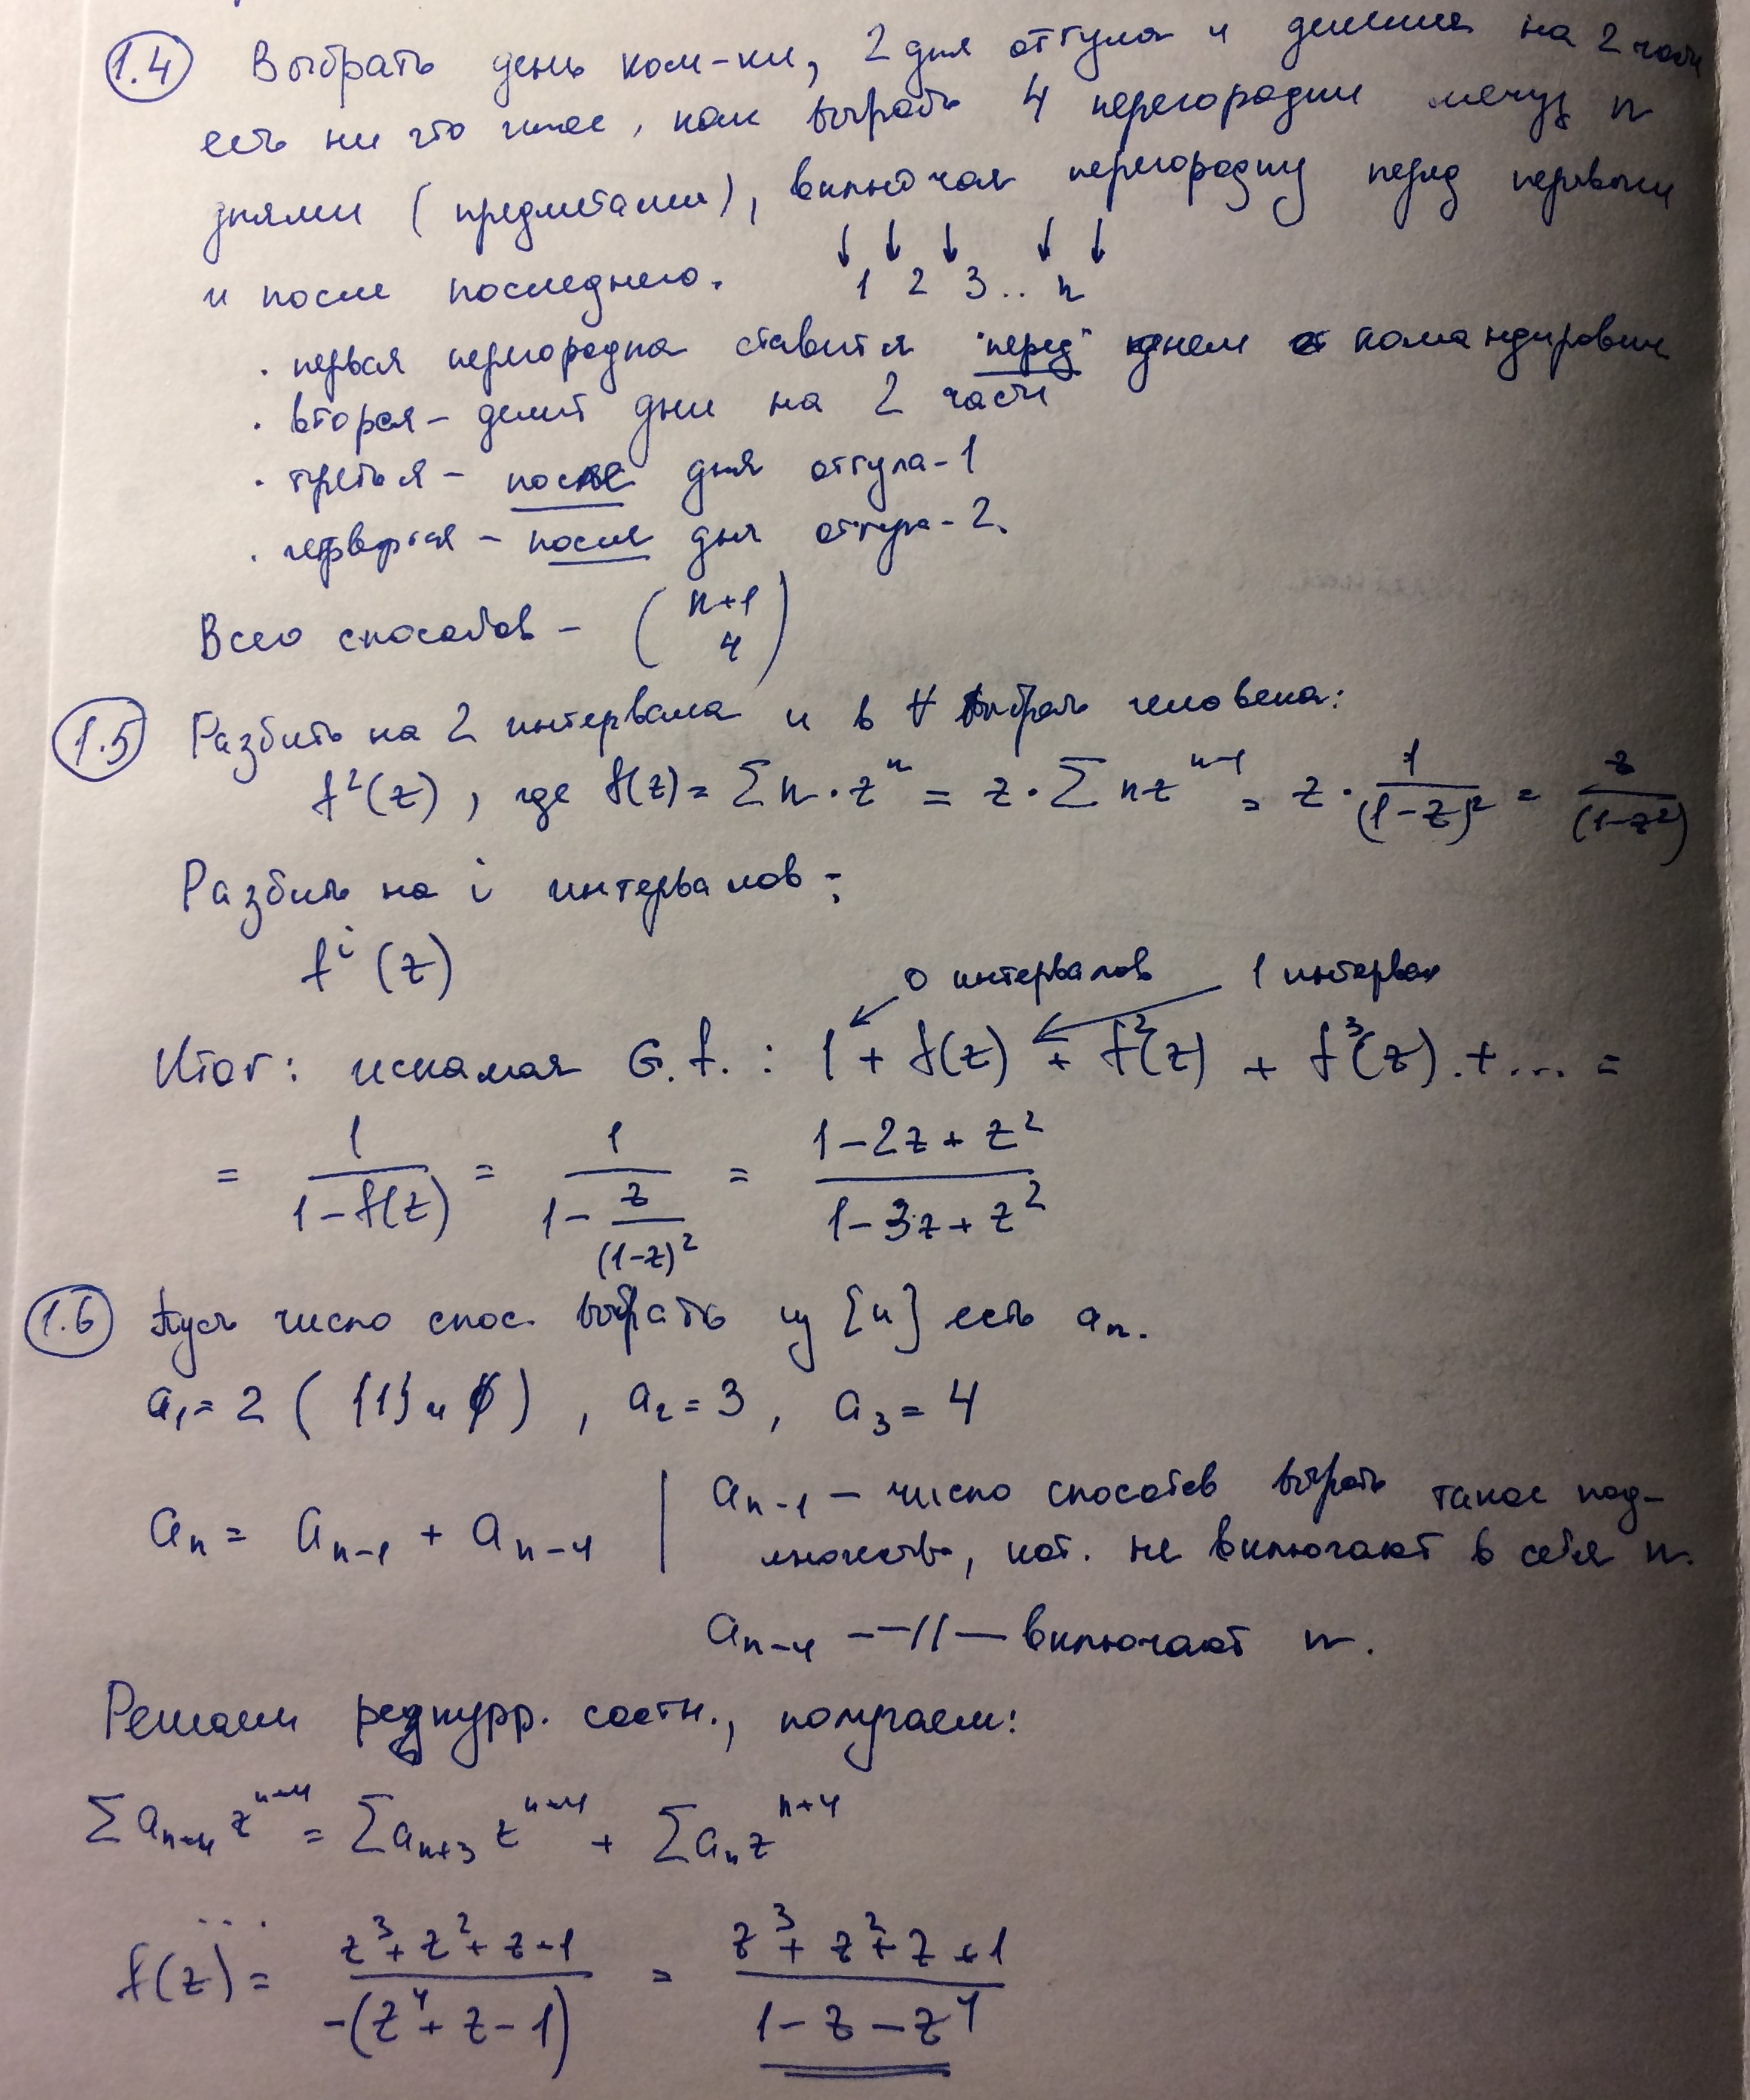 1.4 Выбрать день ком-ки, 2 дня отгула и деление на 2 части
есть ни что иное, как выбрать 4 перегородки между n
днями (предметами), включая перегородку перед первым
и после последнего. ↓ ↓ ↓ ↓ ↓
1 2 3 .. n
· первая перегородка ставится "перед" днем командировки
· вторая – делит дни на 2 части
· третья – после дня отгула-1
· четвертая – после дня отгула-2.
Всего способов – (n+1 4)
1.5 Разбить на 2 интервала и в ∀ выбрать человека:
f²(z), где f(z) = Σ n · zⁿ = z · Σ n zⁿ⁻¹ = z · 1/(1-z)² = z/(1-z²)
Разбить на i интервалов:
fⁱ(z)
0 интервалов 1 интервал
Итог: искомая G.f.: 1 + f(z) + f²(z) + f³(z) + ... =
= 1/(1-f(z)) = 1/(1 - z/(1-z)²) = (1-2z+z²)/(1-3z+z²)
1.6 Пусть число спос. выбрать из [n] есть aₙ.
a₁ = 2 ({1} и ∅), a₂ = 3, a₃ = 4
aₙ = aₙ₋₁ + aₙ₋₄ | aₙ₋₁ – число способов выбрать такое под-
множество, кот. не включают в себя n.
aₙ₋₄ –– // –– включают n.
Решаем рекурр. соотн., получаем:
Σ aₙ₊₄ zⁿ⁺⁴ = Σ aₙ₊₃ zⁿ⁺⁴ + Σ aₙ zⁿ⁺⁴
...
f(z) = (z³+z²+z+1)/(-(z⁴+z-1)) = (z³+z²+z+1)/(1-z-z⁴)